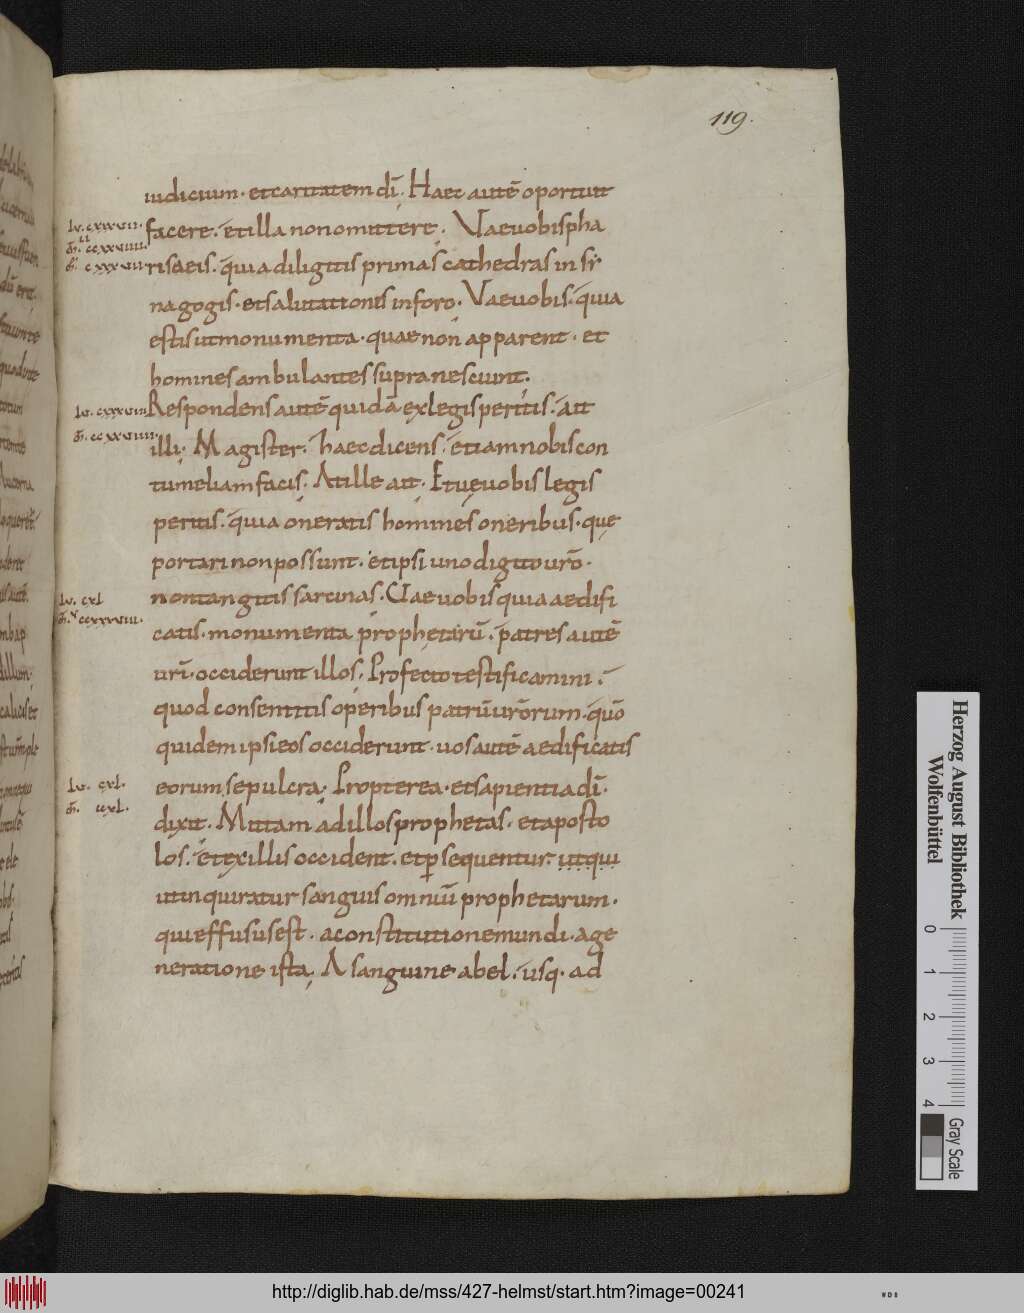 119.
iudicium · et caritatem dī. Haec autē oportuit
facere. et illa non omittere. Vae vobis pha
risaeis. quia diligitis primas cathedras in sy
nagogis · et salutationes in foro. Vae vobis. quia
estis ut monumenta · quae non apparent · et
homines ambulantes supra nesciunt.
Respondens autē quidā ex legis peritis. ait
illi; Magister. haec dicens. etiam nobis con
tumeliam facis. At ille ait. Et vę vobis legis
peritis. quia oneratis homines oneribus · quę
portari non possunt. et ipsi uno digito urō ·
non tangitis sarcinas. Uae vobis quia aedifi
catis · monumenta prophetarū. patres autē
urī · occiderunt illos. Profecto testificamini.
quod consentitis operibus patrū urōrum. quō
quidem ipsi eos occiderunt · uos autē aedificatis
eorum sepulcra. Propterea · et sapientia dī.
dixit. Mittam ad illos prophetas · et aposto
los. et ex illis occident. et psequentur. ut qui
ut inquiratur sanguis omniū prophetarum.
qui effusus est. a constitutione mundi · a ge
neratione ista. A sanguine abel. usq. ad
lv. cxl
lv. cxl.
Herzog August Bibliothek
Wolfenbüttel
0 1 2 3 4
Gray Scale
http://diglib.hab.de/mss/427-helmst/start.htm?image=00241